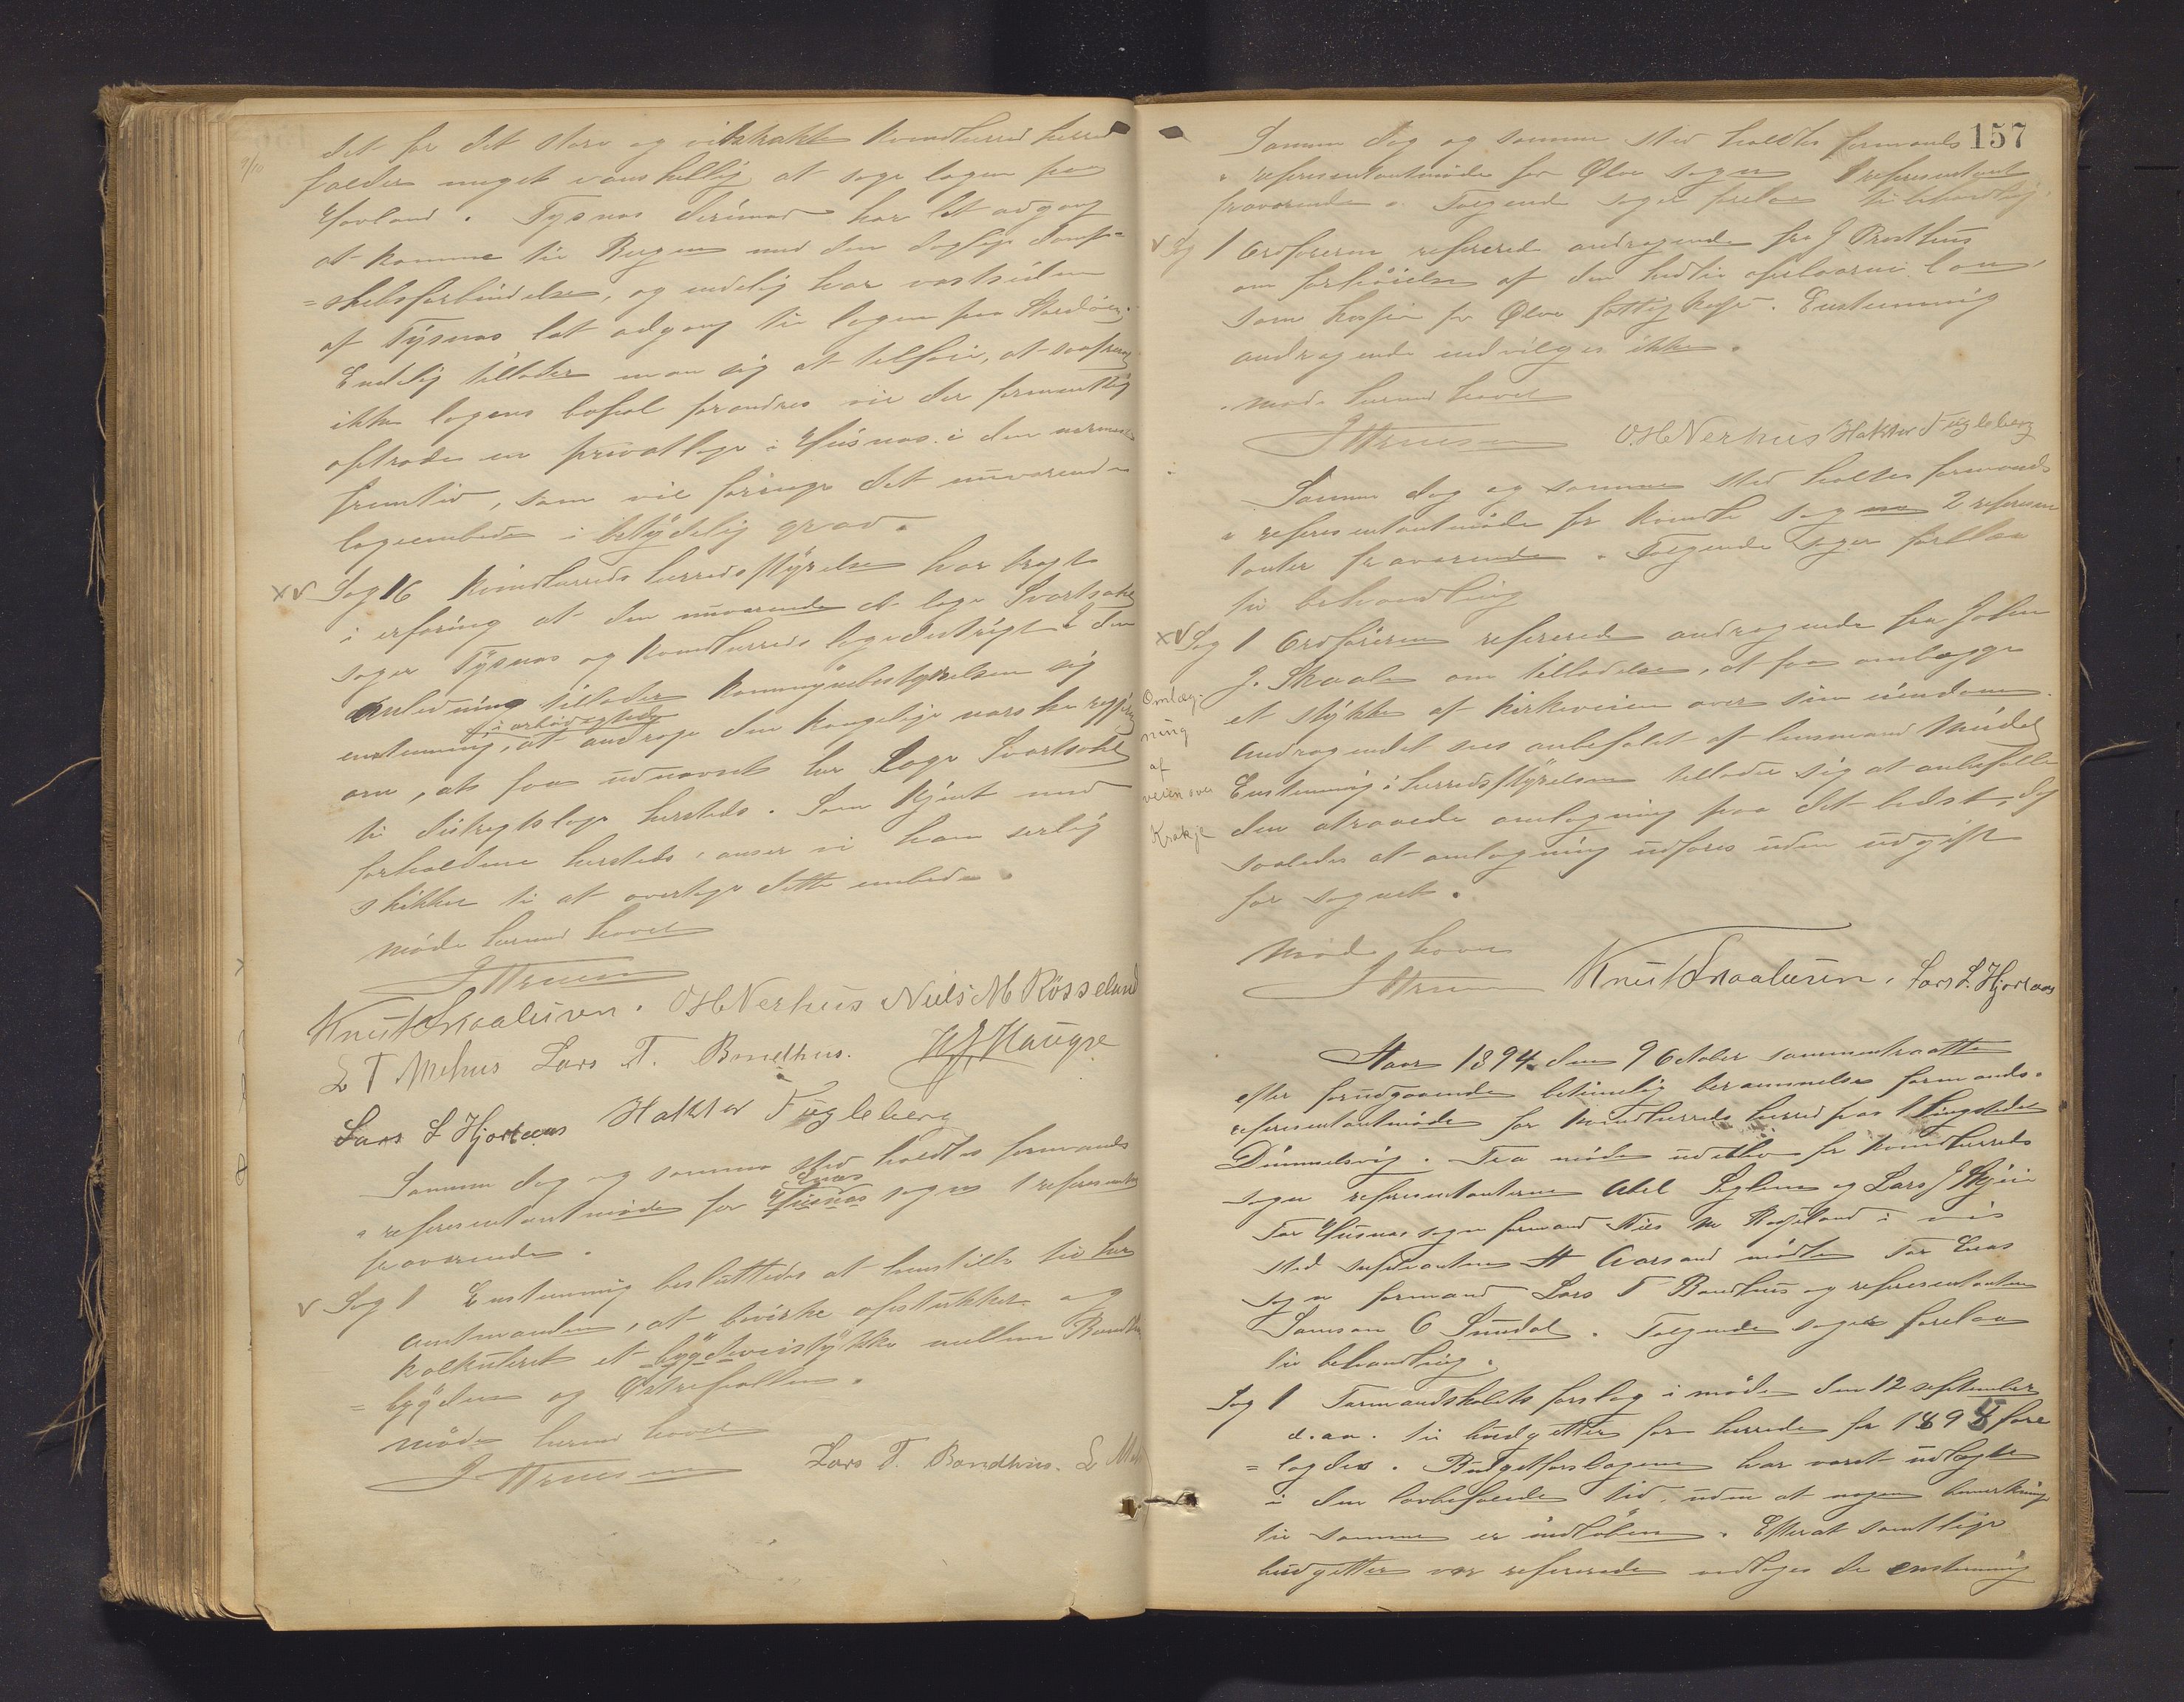 det for det store og vidstrakte Kvindherred herred
falder meget vanskellig at søge lægen paa
Hovland. Tysnes derimod har let adgang
at komme til Bergen med den daglige damp=
=skibsforbindelse, og endelig har vestsiden
af Tysnes let adgang til lægen paa Stordøen.
Endelig tillader man sig at tilføie, at saafremt
ikke lægens bopæl forandres vil der formentlig
optræde en privatlæge i Husnes i den nærmeste
fremtid, som vil forringe det nuværende
lægeembede i betydelig grad.
xv Sag 16 Kvindherreds herredsstyrelse har bragt
i erfaring at den nuværende ct læge Svartsahl
søger Tysnes og Kvindherreds lægedistrigt I den
Anledning tillader Kommunebestyrelsen sig
i ærbødighed
enstemmig, at andrage den kongelige norske regjering
om, at faa udnævnt hr Læge Svartsahl
til distriktslæge hersteds. Som kjent med
forholdene hersteds, anser vi ham serlig
skikket til at overtage dette embede.
møde hermed hævet
Knut Skaaluren. OHNerhus Niels M Røsseland
L T Mehus Lars T. Bondhus. HJHaugse
Lars L Hjortaas Haktor Fugleberg
Samme dag og samme sted holdtes formands
Enæs
& representantmøde for Husnes sogn 1 representant
fraværende.
v Sag 1 Enstemmig besluttedes at henstille til hr
Amtmanden, at bevirke afstukket og
kalkuleret et bygdeveistykke mellem Bond
= bygden og Østrepollen.
møde hermed hævet
Lars T. Bondhus. L Me
157
Samme dag og samme sted holdtes formands
& representantmøde for Ølve sogn 1 representant
fraværende. Følgende sager forlaa til behandling.
v Sag 1 Ordføreren refererede andragende fra J Presthus
om forhøielse af den hidtil oppebaarne løn,
som kasserer for Ølve fattigkasse. Enstemmig
andragende indvilges ikke.
møde hermed hævet
OHNerhus Haktor Fugleberg
Samme dag og samme sted holdtes formands
& representantmøde for Kvindh sogn 2 represen
tanter fraværende. Følgende sager forelaa
til behandling
xv Sag 1 Ordføreren refererede andragende fra John
J. Skaale om tilladelse, at faa omlægge
et stykke af kirkeveien over sin eiendom.
Andragendet sees anbefalet af lensmand Mundal
Enstemmig i herredsstyrelsen tillader sig at anbefalle
den attraaede omlægning paa det bedste, dog
saaledes at omlægning udføres uden udgift
for sognet.
Omlæg-
ning
af
veien over
Krakje
Møde hævet
Knut Skaaluren. Lars L. Hjortaas
Aar 1894 den 9 October sammentraatte
efter forudgaaende betimelig berammelse formands-
representantmøde for Kvindherreds herred paa thingstedet
Dimmelsvig. Fra møde udeblev for Kvindherreds
sogn representanterne Abel Seglem og Lars J Skjeie
For Husnes sogn formand Niels M Røseland i vis
sted suppleanten H Aarsand mødte For Enæs
sogn formand Lars T Bondhus og representanten
Samson O Sundal. Følgende sager forelaa
til behandling.
Sag 1 Formandskabets forslag i møde den 12 september
d.aa. til budgetter for herredet for 1895 fore
=lagdes. Budgetforslagene har været udlagte
i den lovbefalede tid, uden at nogen bemerkning
til samme er indløben. Efterat samtlige
budgetter var refererede vedtoges de enstemmig